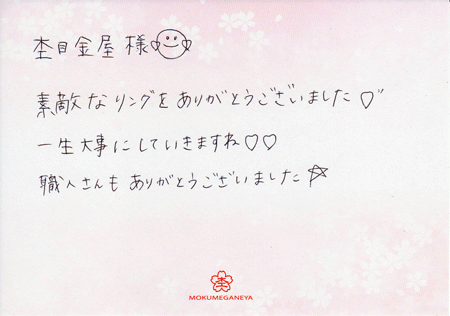 杢目金屋様
素敵なリングをありがとうございました♡"
一生大事にしていきますね♡♡
職人さんもありがとうございました☆
MOKUMEGANEYA